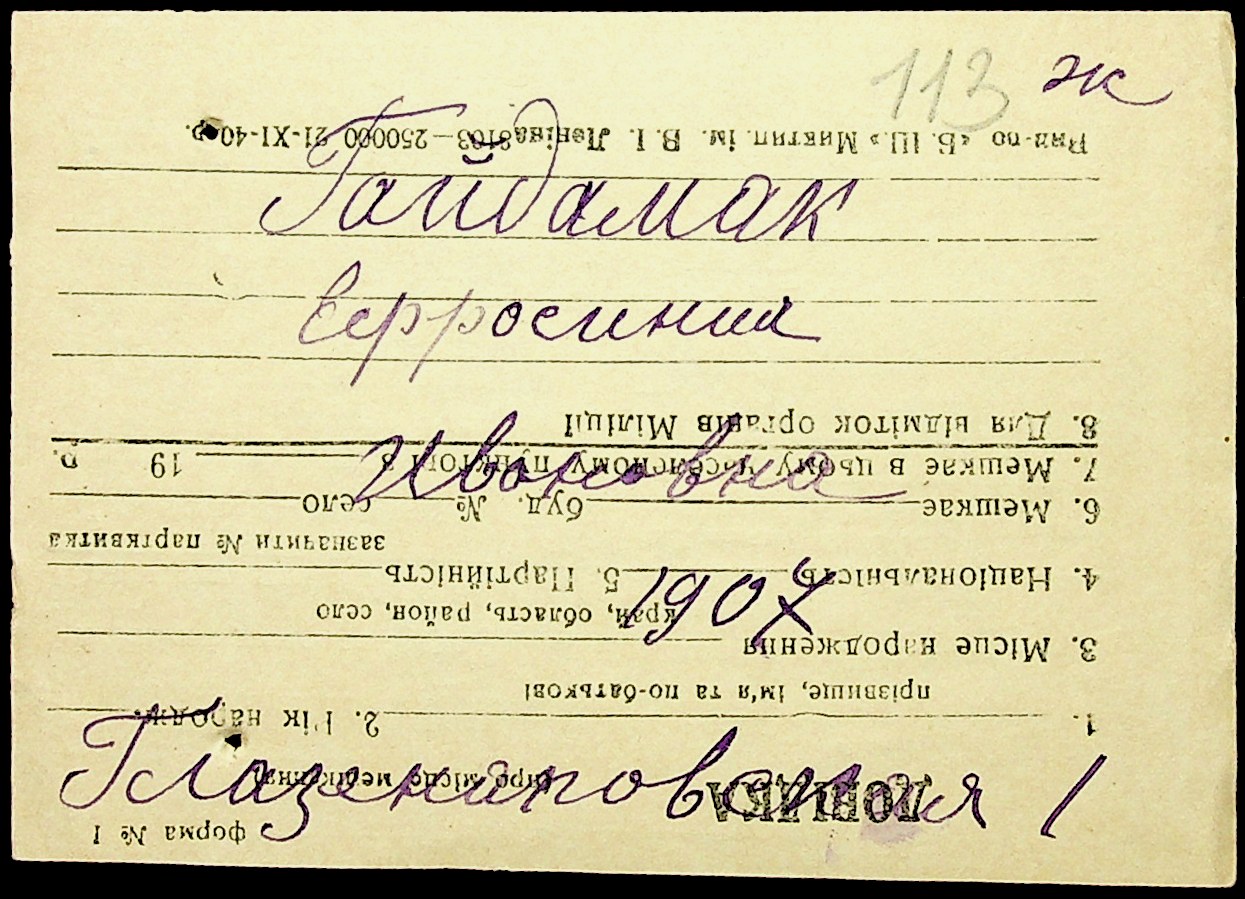 113 ж
Гайдамак
Ефросиния
Ивановна
1907
Глазенаповская 1
форма № 1
ДОВІДКА
(про місце мешкання)
1. 2. Рік народж.
прізвище, ім'я та по-батькові
3. Місце народження
край, область, район, село
4. Національність 5. Партійність
зазначити № партквитка
6. Мешкає буд. № село
7. Мешкає в цьому населеному пункті з 19 р.
8. Для відміток органів Міліції
«Б. Ш.» ім. В. І. Леніна 3103—250000 21-XI-40 р.